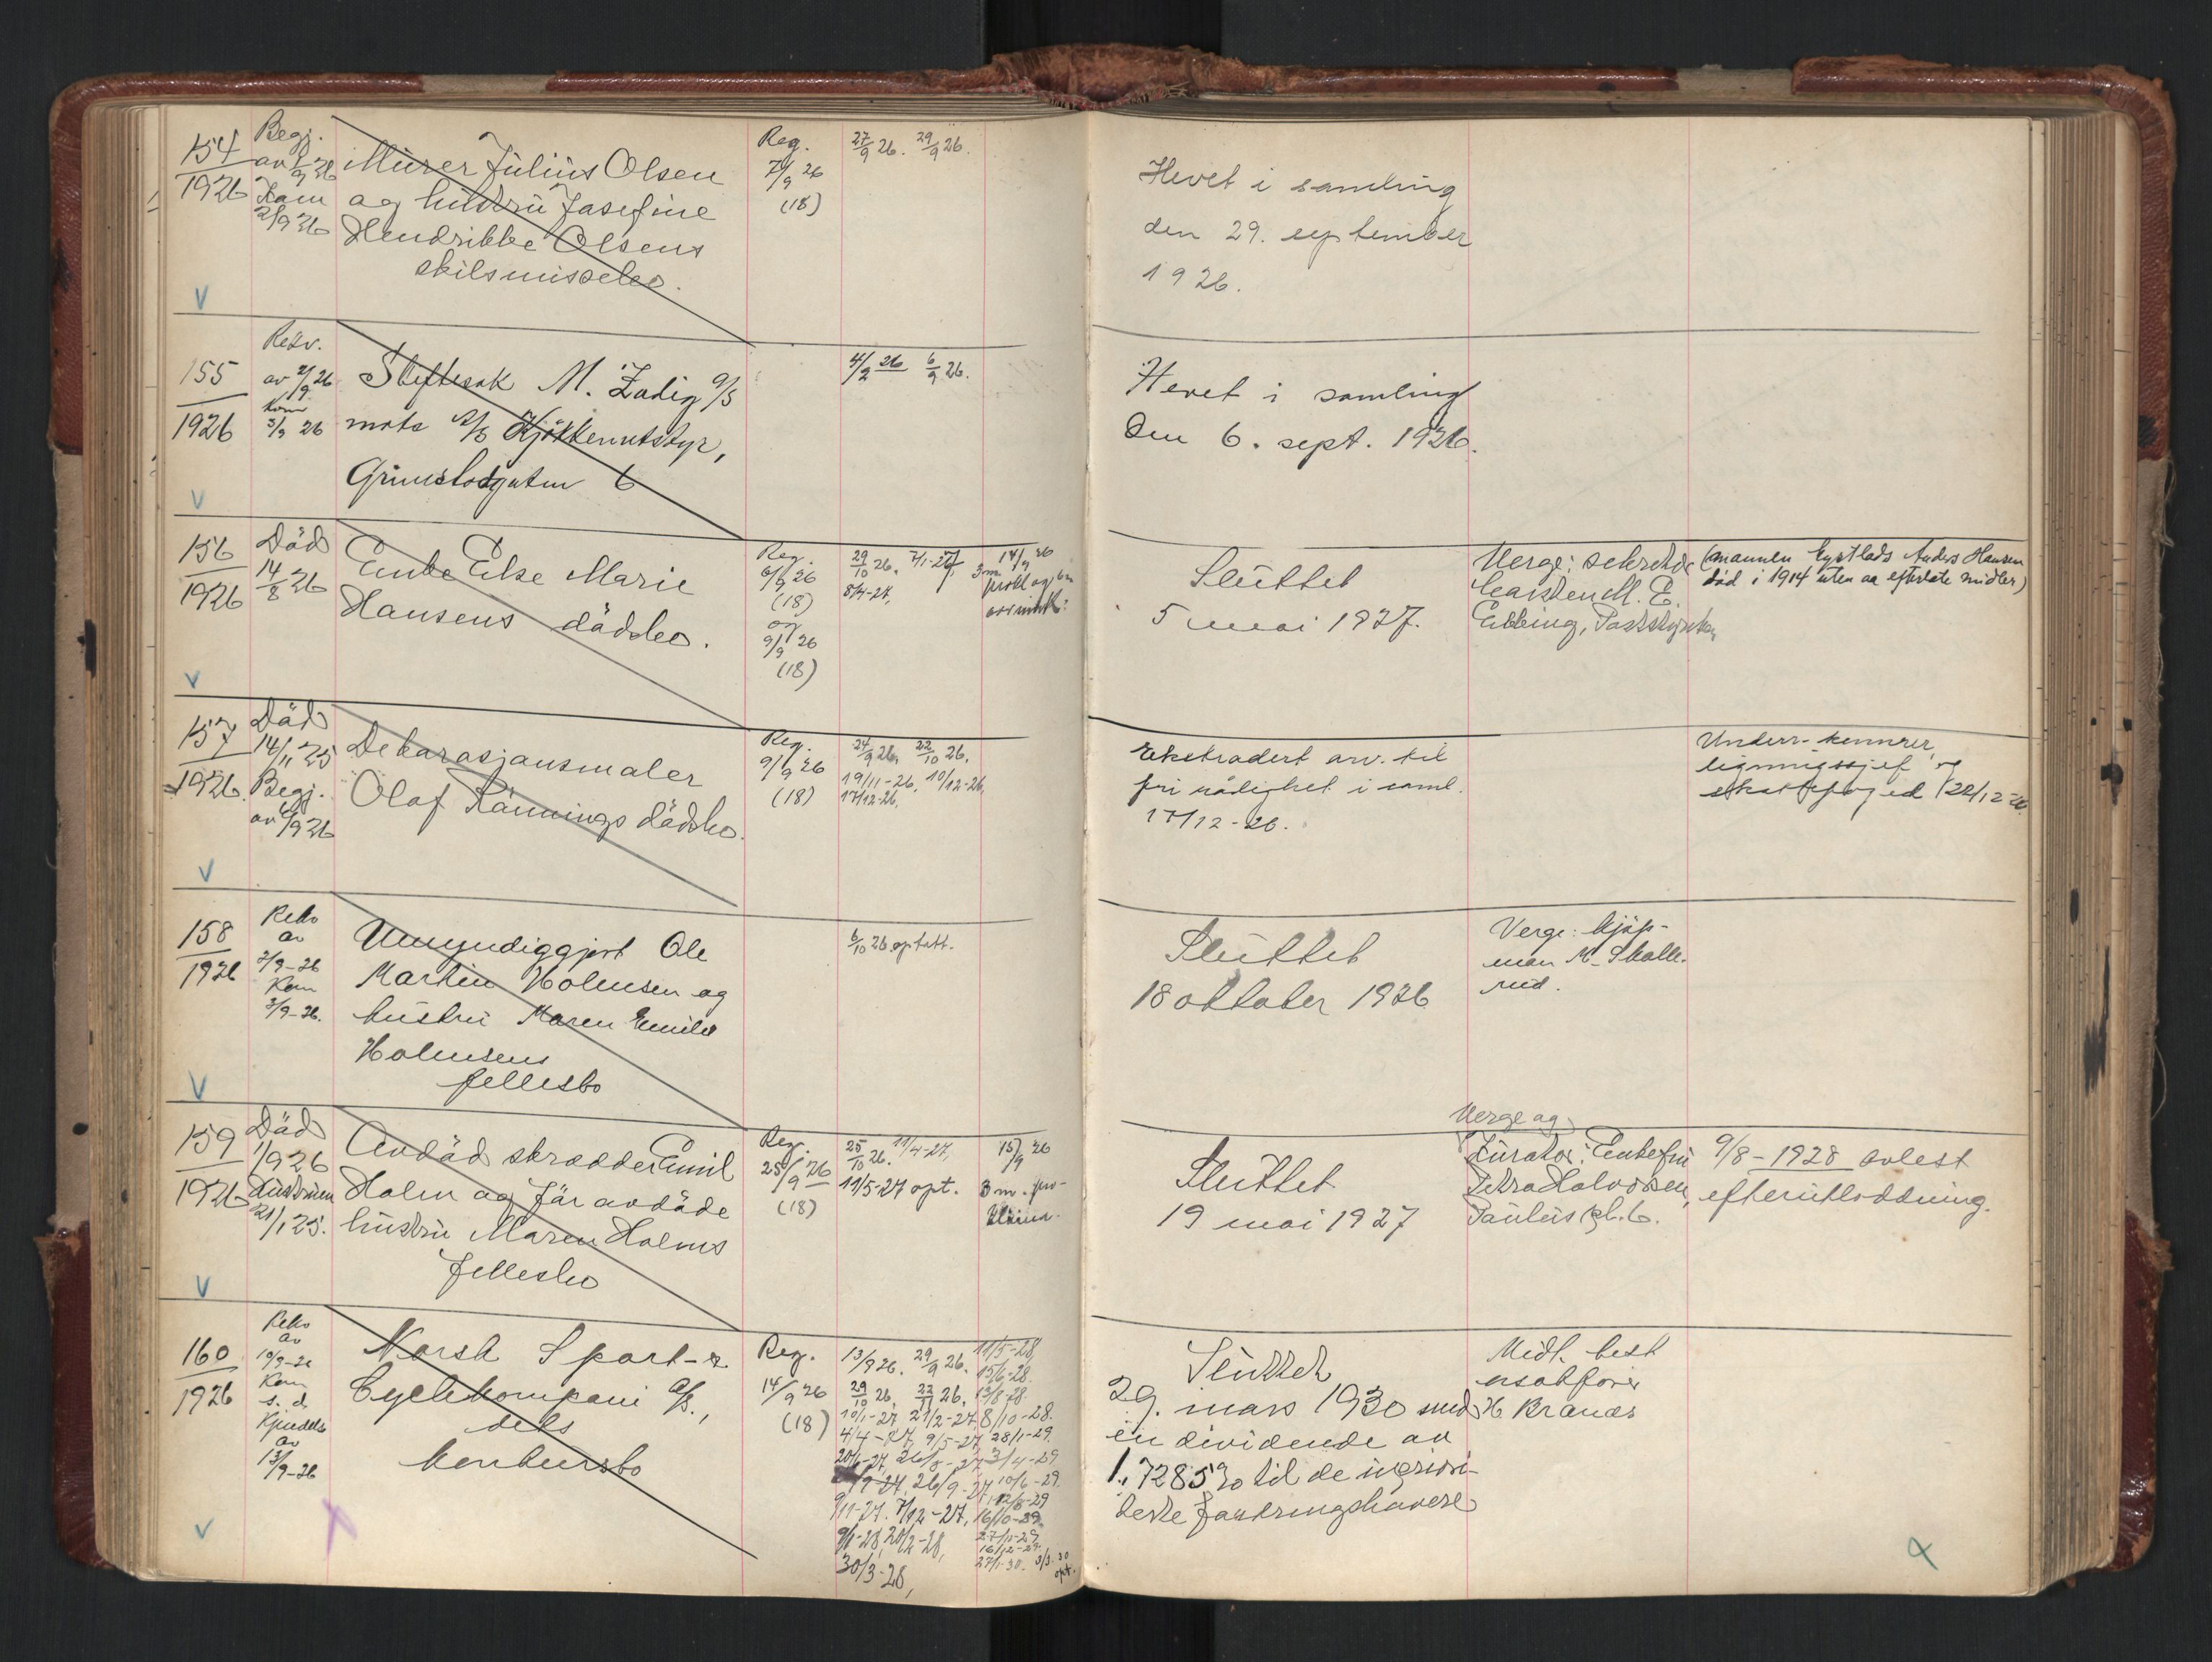 154
1926
Begj.
av 1/9 26
Kom
2/9 26
Murer Julius Olsen
og hustru Josefine
Hendrikke Olsens
skilsmissebo.
Reg.
7/9 26
(18)
27/9 26. 29/9 26.
Hevet i samling
den 29. september
1926.
V
155
1926
Rekv.
av 2/9 26
Kom
3/9 26
Skiftesak M. Zadig a/s
mots a/s Kjøkkenutstyr,
Grimstadgaten 6
4/9 26 6/9 26.
Hevet i samling
den 6. sept. 1926.
V
156
1926
Död
14/8 26
Enke Else Marie
Hansens dödsbo.
Reg.
6/9 26
(18)
og
9/9 26
(18)
29/10 26. 7/1-27,
8/4-27,
14/9 26
3 m.
Sluttet
5 mai 1927.
Verge: sekretær
Carsten M. E.
Ebbing, Poststyret
(mannen Anders Hansen
död i 1914 uten aa efterlate midler)
V
157
1926.
Död
14/11 25
Begj.
av 6/9 26
Dekorasjonsmaler
Olaf Rönnings dödsbo.
Reg.
9/9 26
(18)
24/9 26. 22/10 26.
19/11-26. 10/12-26,
17/12-26,
Ekstradert arv. til
fri rådighet i saml.
17/12-26.
Underr. kemner,
ligningssjef og
skattefoged 22/12-26.
V
158
1926
Rekv
av
2/9-26
Kom
3/9-26.
Umyndiggjort Ole
Martin Holmsen og
hustru Maren Emilie
Holmsens
fellesbo
6/10 26 optatt.
Sluttet
18 oktober 1926
Verge: kjöp-
man M. Skolle-
rud.
V
159
1926
Död
1/9 26
Hustruen
21/1 25.
Avdöd skrædder Emil
Holm og för avdöde
hustru Maren Holms
fellesbo
Reg.
25/9 26
(18)
25/10 26. 11/4-27,
11/5-27 opt.
15/9 26
3 m. pro-
klama.
Sluttet
19 mai 1927
Verge og
Kurator: Enkefru
Petra Halvorsen,
Paulus pl. 6.
9/8-1928 avlest
efterutlodning.
V
160
1926
Rekv
av
10/9-26
Kom
s. d.
Kjendelse
av
13/9-26
Norsk Sport- &
Cyclekompani a/s.,
dets
konkursbo
Reg.
14/9 26
(18)
13/9 26. 29/9 26. 11/5-28,
15/6-28.
29/10 26, 22/11 26, 13/8-28
10/1-27 21/2-27 8/10-28.
4/4-27, 9/5-27 28/1-29.
3/4-29
26/9-27 10/6-29.
9/11-27. 7/12-27, 16/10-29.
9/1-28, 20/2-28, 27/11-29.
16/12-29.
30/3-28, 27/1-30. 3/3-30
opt.
Sluttet
29. mars 1930 med
en dividende av
1,7285 % til de uprivi-
lerte fordringshavere
Midl. best
o.r.sakförer
H. Brænds
V